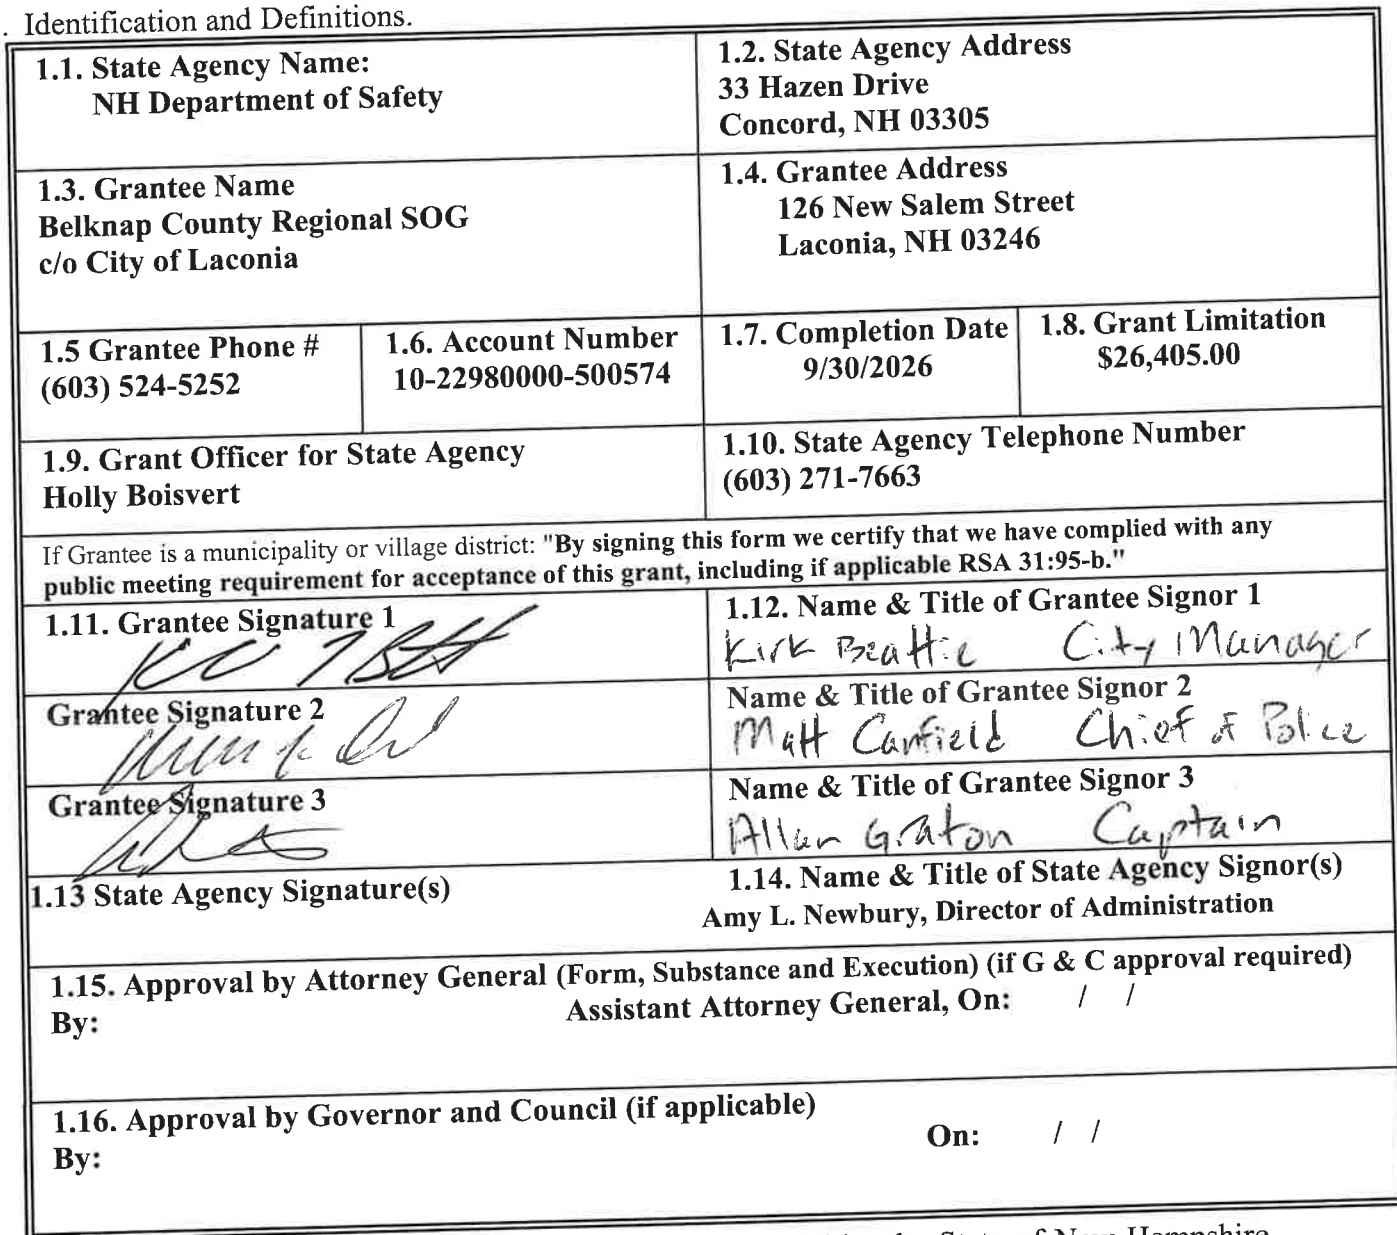 . Identification and Definitions.
1.1. State Agency Name:
NH Department of Safety
1.2. State Agency Address
33 Hazen Drive
Concord, NH 03305
1.3. Grantee Name
Belknap County Regional SOG
c/o City of Laconia
1.4. Grantee Address
126 New Salem Street
Laconia, NH 03246
1.5 Grantee Phone #
(603) 524-5252
1.6. Account Number
10-22980000-500574
1.7. Completion Date
9/30/2026
1.8. Grant Limitation
$26,405.00
1.9. Grant Officer for State Agency
Holly Boisvert
1.10. State Agency Telephone Number
(603) 271-7663
If Grantee is a municipality or village district: "By signing this form we certify that we have complied with any
public meeting requirement for acceptance of this grant, including if applicable RSA 31:95-b."
1.11. Grantee Signature 1
1.12. Name & Title of Grantee Signor 1
Kirk Beattie City Manager
Grantee Signature 2
Name & Title of Grantee Signor 2
Matt Canfield Chief of Police
Grantee Signature 3
Name & Title of Grantee Signor 3
Allan Graton Captain
1.13 State Agency Signature(s)
1.14. Name & Title of State Agency Signor(s)
Amy L. Newbury, Director of Administration
1.15. Approval by Attorney General (Form, Substance and Execution) (if G & C approval required)
By: Assistant Attorney General, On: / /
1.16. Approval by Governor and Council (if applicable)
By: On: / /
State of New Hampshire